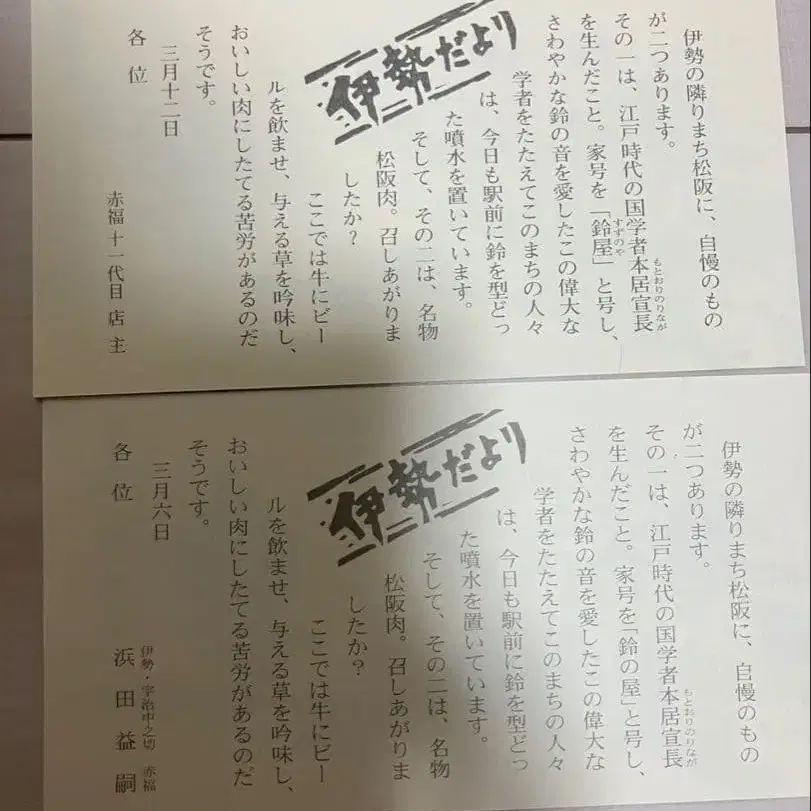 伊勢の隣りまち松阪に、自慢のもの
が二つあります。
その一は、江戸時代の国学者本居宣長
もとおりのりなが
を生んだこと。家号を「鈴屋」と号し、
すずのや
さわやかな鈴の音を愛したこの偉大な
学者をたたえてこのまちの人々
は、今日も駅前に鈴を型どっ
た噴水を置いています。
そして、その二は、名物
松阪肉。召しあがりま
したか?
ここでは牛にビー
ルを飲ませ、与える草を吟味し、
おいしい肉にしたてる苦労があるのだ
そうです。
三月十二日
赤福十一代目店主
各位
伊勢だより
伊勢の隣りまち松阪に、自慢のもの
が二つあります。
その一は、江戸時代の国学者本居宣長
もとおりのりなが
を生んだこと。家号を「鈴の屋」と号し、
さわやかな鈴の音を愛したこの偉大な
学者をたたえてこのまちの人々
は、今日も駅前に鈴を型どっ
た噴水を置いています。
そして、その二は、名物
松阪肉。召しあがりま
したか?
ここでは牛にビー
ルを飲ませ、与える草を吟味し、
おいしい肉にしたてる苦労があるのだ
そうです。
三月六日
伊勢・宇治中之切 赤福
浜田益嗣
各位
伊勢だより